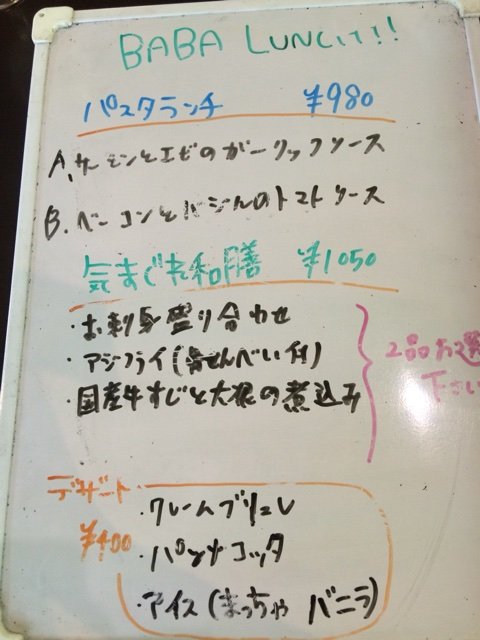 BABA LUNCH!!
パスタランチ ¥980
A.サーモンとエビのガーリックソース
B.ベーコンとバジルのトマトソース
気まぐれ和膳 ¥1050
・お刺身盛り合わせ
・アジフライ(骨せんべい付)
・国産牛すじと大根の煮込み
2品お選
下さい
デザート
¥400
・クレームブリュレ
・パンナコッタ
・アイス(まっちゃ バニラ)